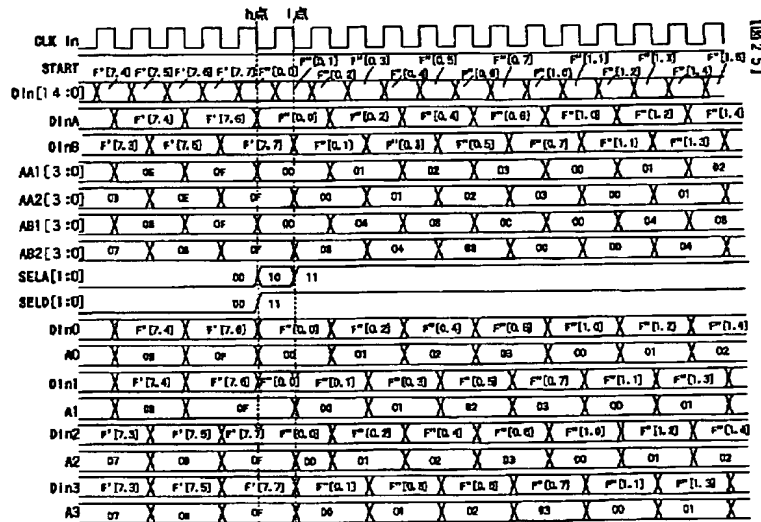 h点 i点
CLK In
START
F'[7,4] F'[7,5] F'[7,6] F'[7,7] F"[0,0] F"[0,1] F"[0,2] F"[0,3] F"[0,4] F"[0,5] F"[0,6] F"[0,7] F"[1,0] F"[1,1] F"[1,2] F"[1,3] F"[1,4] F"[1,5]
DIn[14:0]
DInA F'[7,4] F'[7,6] F"[0,0] F"[0,2] F"[0,4] F"[0,6] F"[1,0] F"[1,2] F"[1,4]
DInB F'[7,3] F'[7,5] F'[7,7] F"[0,1] F"[0,3] F"[0,5] F"[0,7] F"[1,1] F"[1,3]
AA1[3:0] 0E 0F 00 01 02 03 00 01 02
AA2[3:0] 0E 0F 00 01 02 03 00 01
AB1[3:0] 0F 00 04 08 0C 00 04 08
AB2[3:0] 07 0F 04 08 00 04
SELA[1:0] 00 10 11
SELD[1:0] 00 11
DIn0 F'[7,4] F'[7,6] F"[0,0] F"[0,2] F"[0,4] F"[1,0] F"[1,2] F"[1,4]
A0 0F 00 01 02 03 00 01 02
DIn1 F'[7,4] F'[7,6] F"[0,0] F"[0,1] F"[0,3] F"[0,5] F"[0,7] F"[1,1] F"[1,3]
A1 0F 00 01 02 03 00 01
DIn2 F'[7,3] F'[7,5] F'[7,7] F"[0,0] F"[0,2] F"[0,4] F"[0,6] F"[1,0] F"[1,2] F"[1,4]
A2 07 0F 00 01 02 03 00 01 02
DIn3 F'[7,3] F'[7,5] F'[7,7] F"[0,1] F"[0,7] F"[1,1] F"[1,3]
A3 07 0F 00 01 02 03 00 01
【図25】